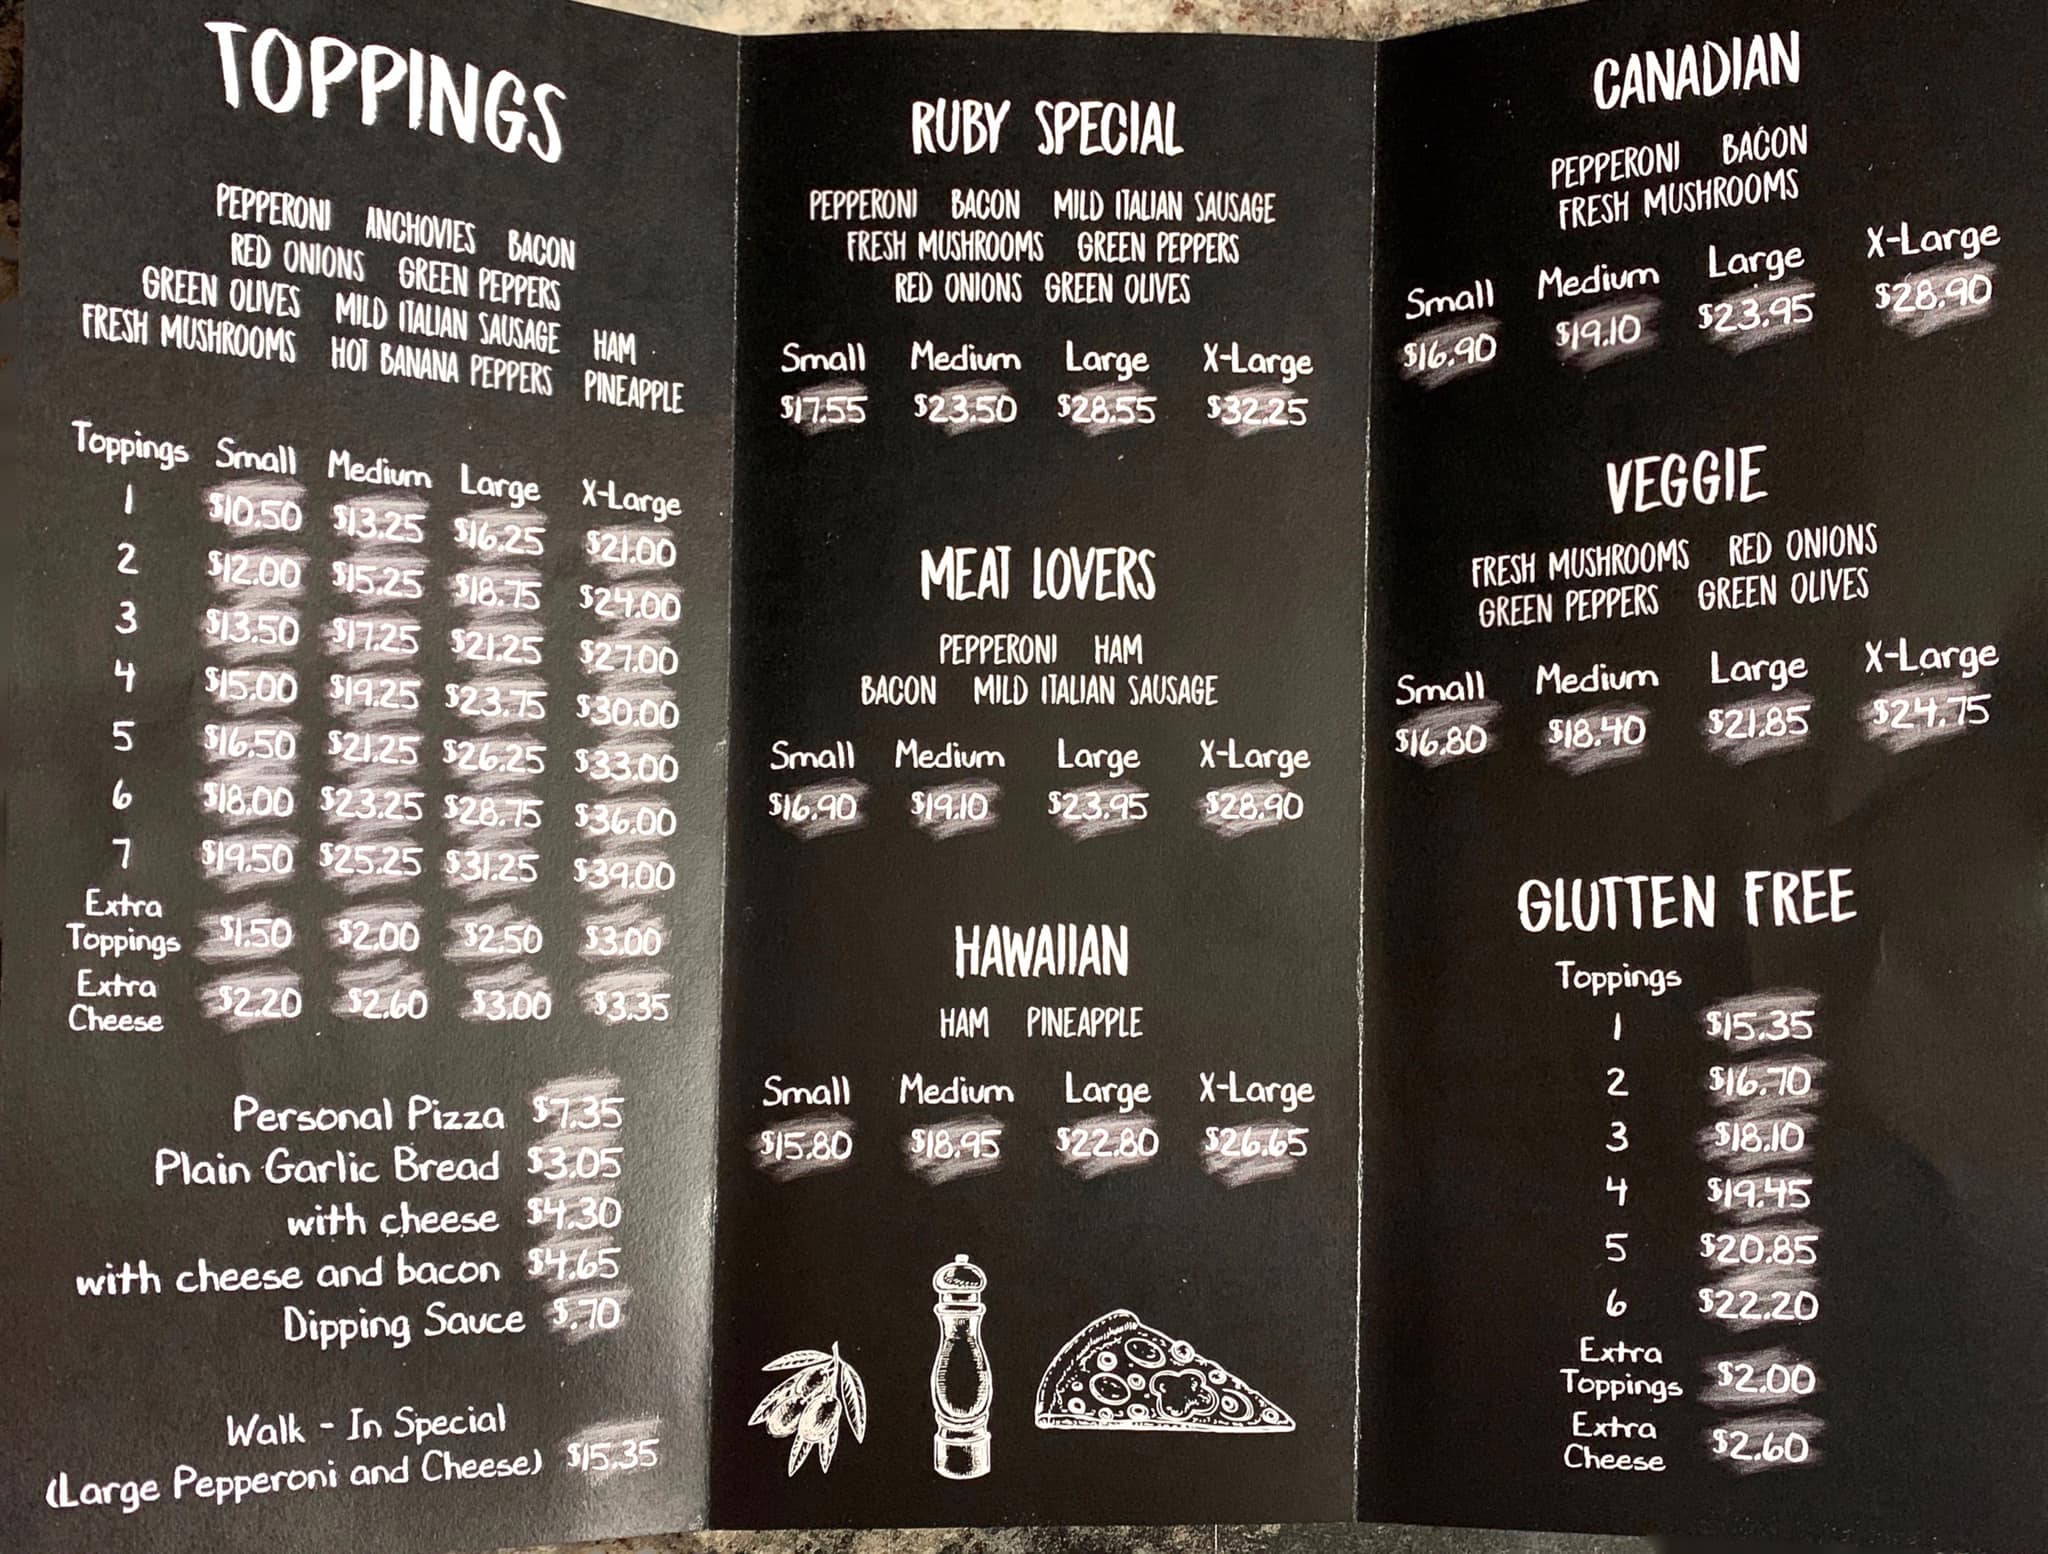 TOPPINGS
PEPPERONI ANCHOVIES BACON
RED ONIONS GREEN PEPPERS
GREEN OLIVES MILD ITALIAN SAUSAGE HAM
FRESH MUSHROOMS HOT BANANA PEPPERS PINEAPPLE
Toppings Small Medium Large X-Large
1 $10.50 $13.25 $16.25 $21.00
2 $12.00 $15.25 $18.75 $24.00
3 $13.50 $17.25 $21.25 $27.00
4 $15.00 $19.25 $23.75 $30.00
5 $16.50 $21.25 $26.25 $33.00
6 $18.00 $23.25 $28.75 $36.00
7 $19.50 $25.25 $31.25 $39.00
Extra
Toppings $1.50 $2.00 $2.50 $3.00
Extra
Cheese $2.20 $2.60 $3.00 $3.35
Personal Pizza $7.35
Plain Garlic Bread $3.05
with cheese $4.30
with cheese and bacon $4.65
Dipping Sauce $.70
Walk - In Special
(Large Pepperoni and Cheese) $15.35
RUBY SPECIAL
PEPPERONI BACON MILD ITALIAN SAUSAGE
FRESH MUSHROOMS GREEN PEPPERS
RED ONIONS GREEN OLIVES
Small Medium Large X-Large
$17.55 $23.50 $28.55 $32.25
MEAT LOVERS
PEPPERONI HAM
BACON MILD ITALIAN SAUSAGE
Small Medium Large X-Large
$16.90 $19.10 $23.95 $28.90
HAWAIIAN
HAM PINEAPPLE
Small Medium Large X-Large
$15.80 $18.95 $22.80 $26.65
CANADIAN
PEPPERONI BACON
FRESH MUSHROOMS
Small Medium Large X-Large
$16.90 $19.10 $23.95 $28.90
VEGGIE
FRESH MUSHROOMS RED ONIONS
GREEN PEPPERS GREEN OLIVES
Small Medium Large X-Large
$16.80 $18.40 $21.85 $24.75
GLUTTEN FREE
Toppings
1 $15.35
2 $16.70
3 $18.10
4 $19.45
5 $20.85
6 $22.20
Extra
Toppings $2.00
Extra
Cheese $2.60